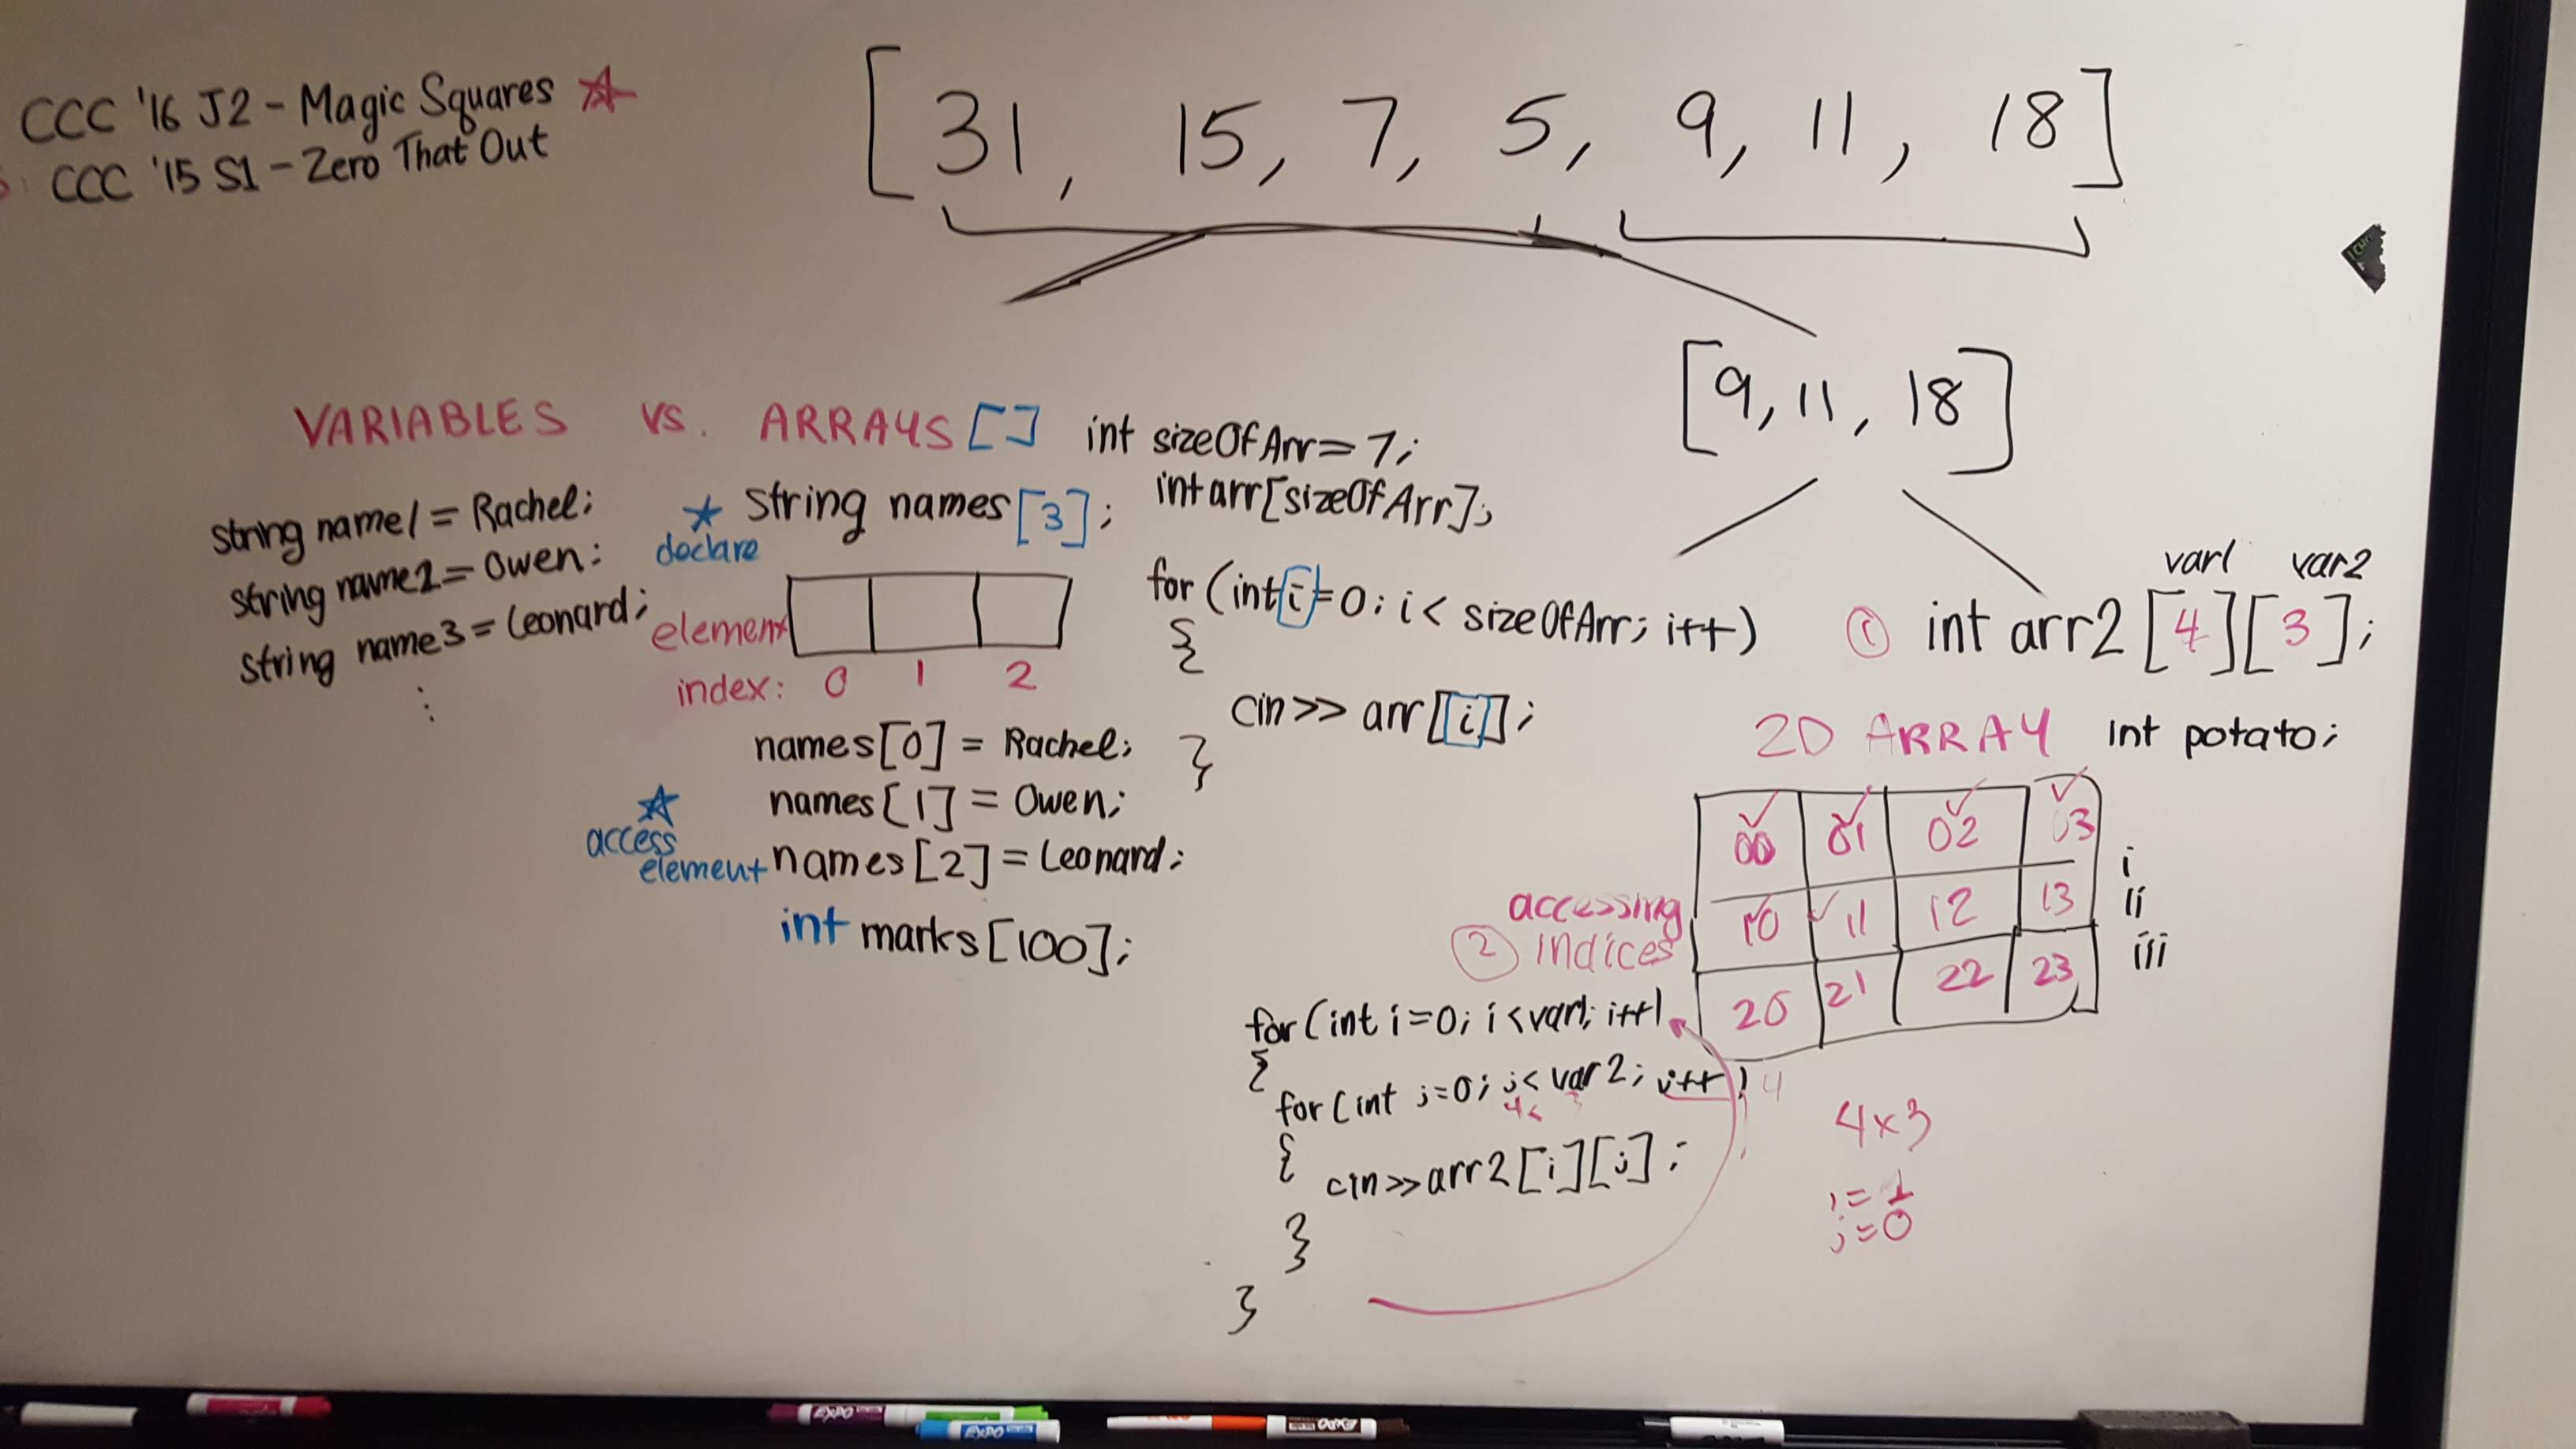 CCC '16 J2 - Magic Squares
CCC '15 S1 - Zero That Out
[31, 15, 7, 5, 9, 11, 18]
[9, 11, 18]
VARIABLES vs. ARRAYS []
string name1 = Rachel;
string name2 = Owen;
string name3 = Leonard;
⋮
declare
string names[3];
element
index: 0 1 2
names[0] = Rachel;
names[1] = Owen;
access
element
names[2] = Leonard;
int marks[100];
int sizeOfArr = 7;
int arr[sizeOfArr];
for (int i=0; i < sizeOfArr; i++)
{
cin >> arr[i];
}
var1 var2
① int arr2 [4][3];
2D ARRAY int potato;
00 01 02 03
i
10 11 12 13
ii
20 21 22 23
iii
accessing
② indices
for (int i=0; i < var1; i++)
{
for (int j=0; j < var2; j++) 4
4<
{
cin >> arr2[i][j];
}
}
4x3
i = 1
j = 0
EXPO
EXPO
EXPO